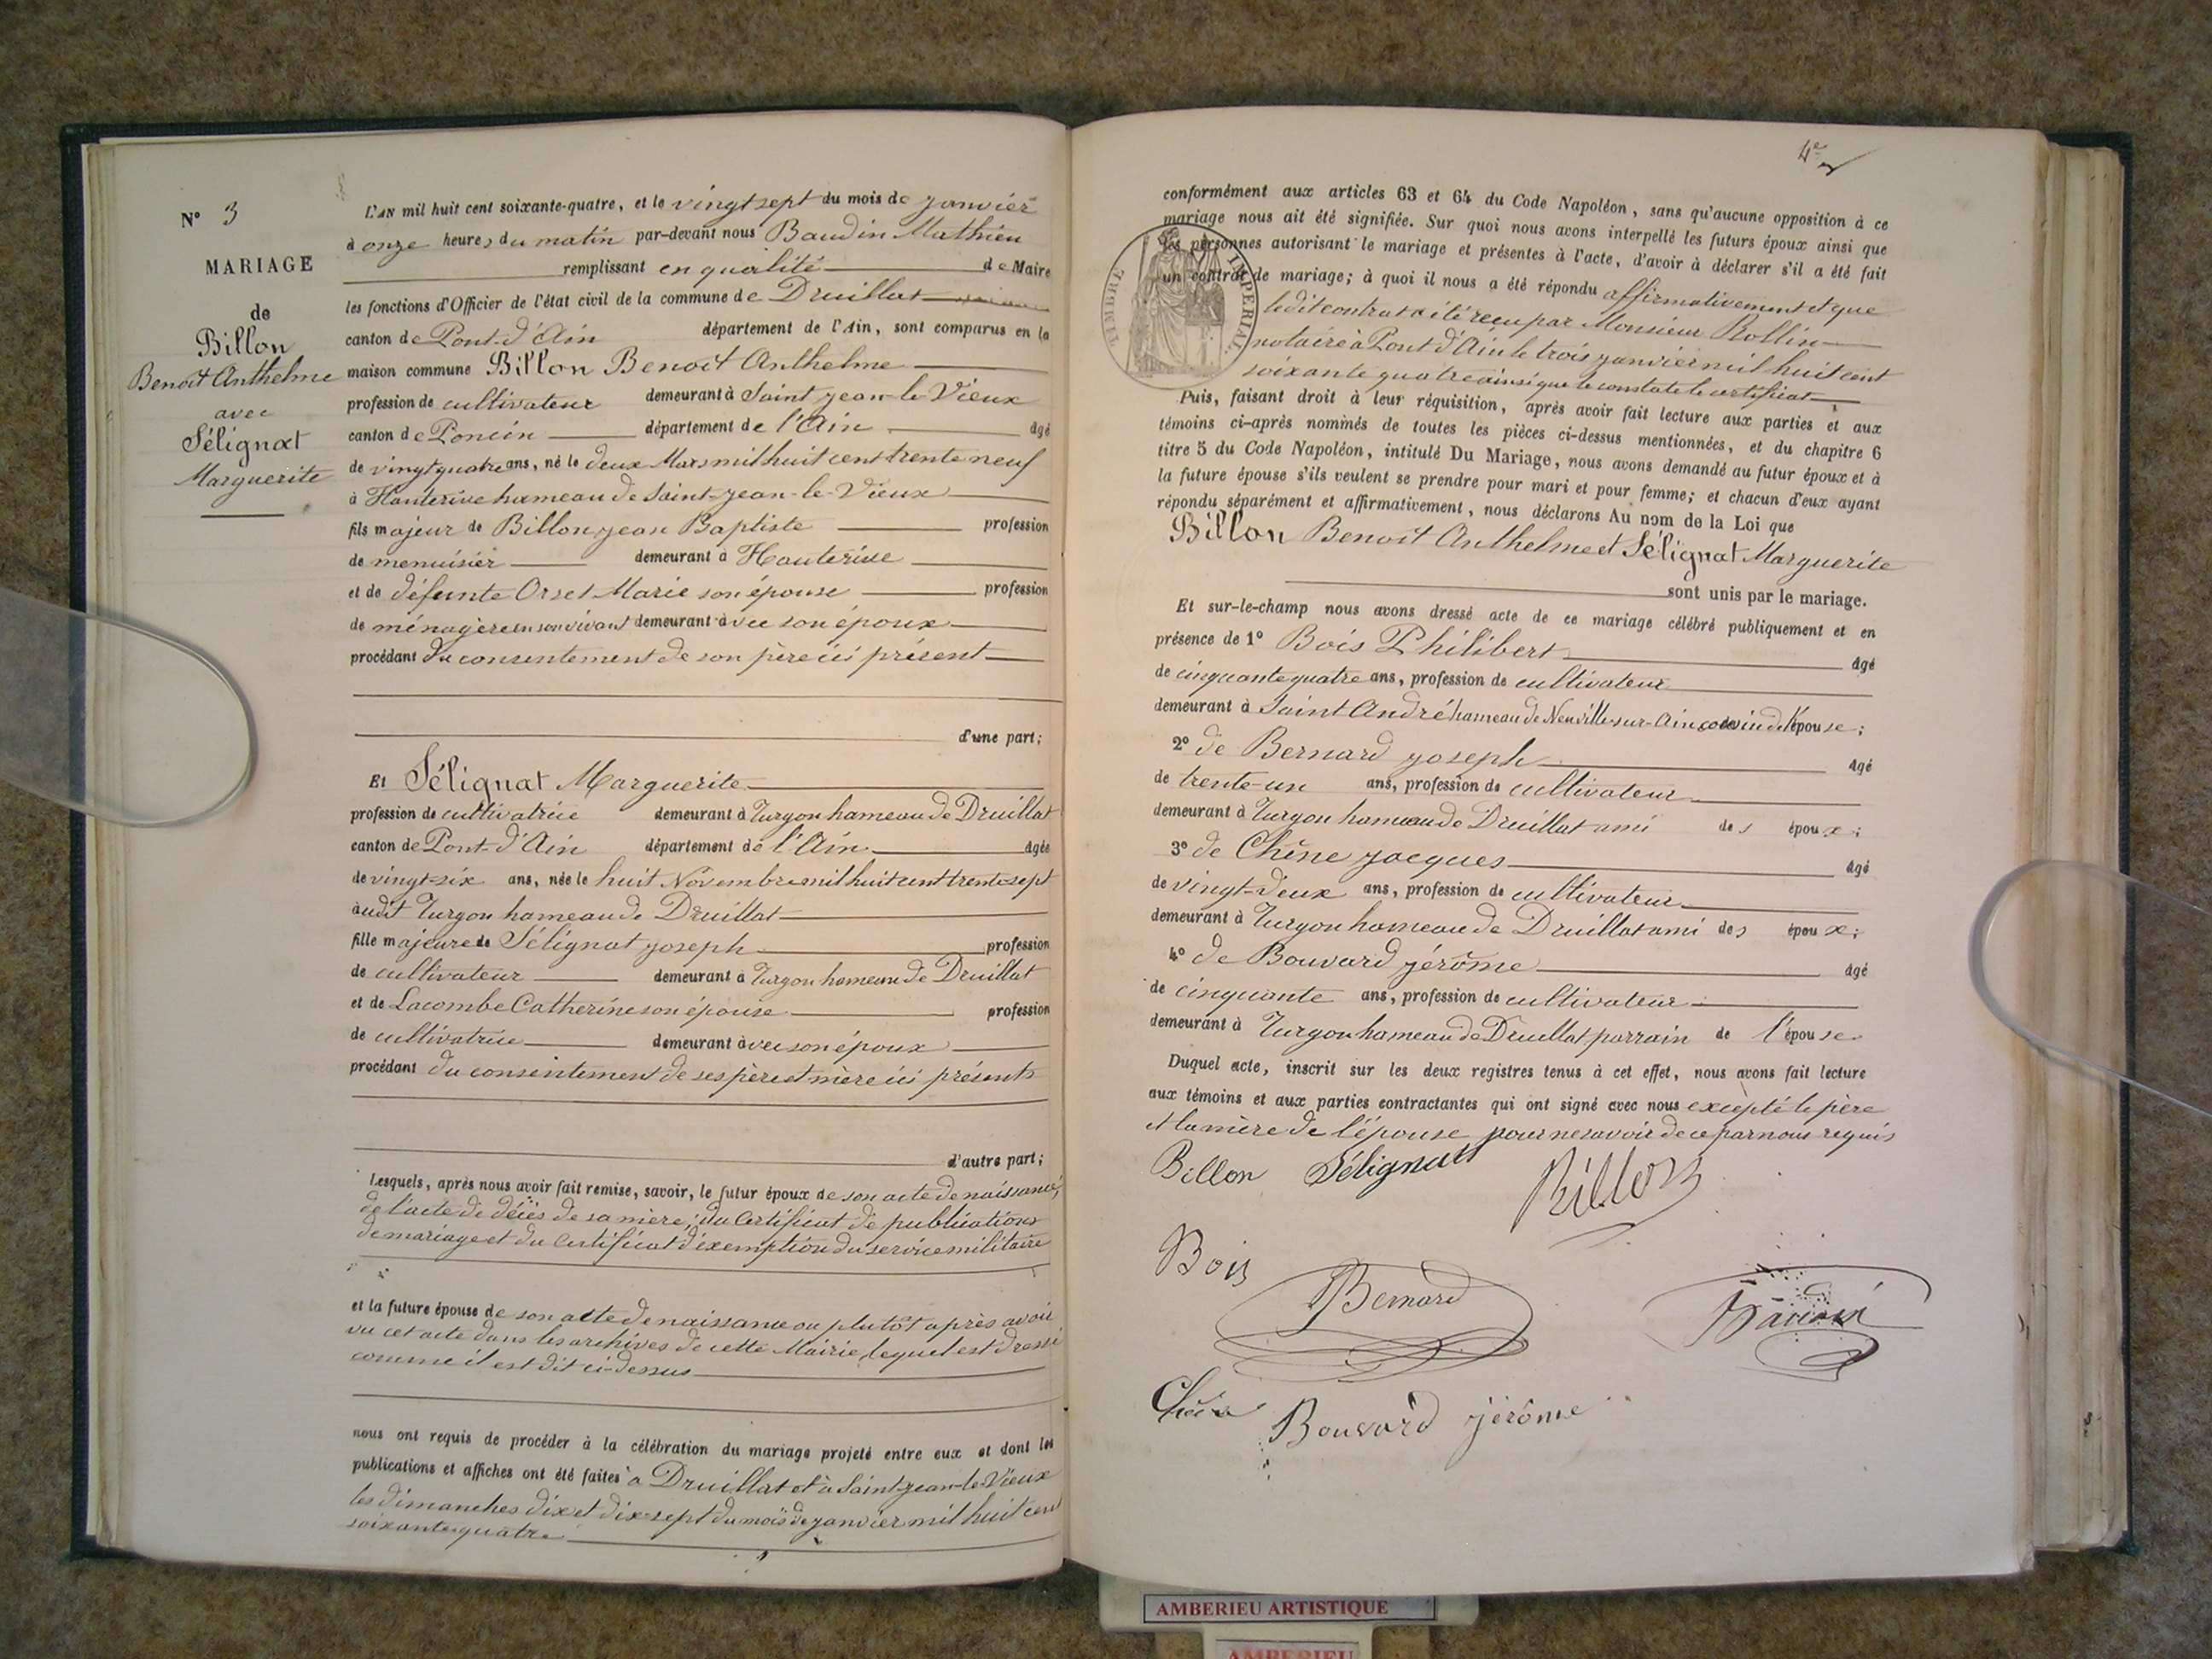 N° 3
MARIAGE
de
Billon
Benoît Anthelme
avec
Sélignat
Marguerite
L'AN mil huit cent soixante-quatre, et le vingt sept du mois de janvier
à onze heures du matin par-devant nous Baudin Mathieu
remplissant en qualité de Maire
les fonctions d'Officier de l'état civil de la commune de Druillat
canton de Pont-d'Ain département de l'Ain, sont comparus en la
maison commune Billon Benoît Anthelme
profession de cultivateur demeurant à Saint jean-le-Vieux
canton de Poncin département de l'Ain âgé
de vingt quatre ans, né le deux Mars mil huit cent trente neuf
à Hauterive hameau de Saint-jean-le-Vieux
fils majeur de Billon jean Baptiste profession
de menuisier demeurant à Hauterive
et de défunte Orset Marie son épouse profession
de ménagère en son vivant demeurant avec son époux
procédant du consentement de son père ici présent
d'une part;
Et Sélignat Marguerite
profession de cultivatrice demeurant à Turgon hameau de Druillat
canton de Pont-d'Ain département de l'Ain âgée
de vingt-six ans, née le huit Novembre mil huit cent trente sept
audit Turgon hameau de Druillat
fille majeure de Sélignat joseph profession
de cultivateur demeurant à Turgon hameau de Druillat
et de Lacombe Catherine son épouse profession
de cultivatrice demeurant avec son époux
procédant du consentement de ses père et mère ici présents
d'autre part;
Lesquels, après nous avoir fait remise, savoir, le futur époux de son acte de naissance,
de l'acte de décès de sa mère; du Certificat de publications
de mariage et du Certificat d'exemption du service militaire
et la future épouse de son acte de naissance ou plutôt après avoir
vu cet acte dans les archives de cette Mairie, lequel est dressé
comme il est dit ci-dessus
nous ont requis de procéder à la célébration du mariage projeté entre eux et dont les
publications et affiches ont été faites à Druillat et à Saint-jean-le-Vieux
les dimanches dix et dix-sept du mois de janvier mil huit cent
soixante quatre
4e
conformément aux articles 63 et 64 du Code Napoléon, sans qu'aucune opposition à ce
mariage nous ait été signifiée. Sur quoi nous avons interpellé les futurs époux ainsi que
les personnes autorisant le mariage et présentes à l'acte, d'avoir à déclarer s'il a été fait
un contrat de mariage; à quoi il nous a été répondu affirmativement et que
TIMBRE IMPERIAL
ledit contrat a été reçu par Monsieur Rollin
notaire à Pont d'Ain le trois janvier mil huit cent
soixante quatre ainsi que le constate le certificat
Puis, faisant droit à leur réquisition, après avoir fait lecture aux parties et aux
témoins ci-après nommés de toutes les pièces ci-dessus mentionnées, et du chapitre 6
titre 5 du Code Napoléon, intitulé Du Mariage, nous avons demandé au futur époux et à
la future épouse s'ils veulent se prendre pour mari et pour femme; et chacun d'eux ayant
répondu séparément et affirmativement, nous déclarons Au nom de la Loi que
Billon Benoît Anthelme et Sélignat Marguerite
sont unis par le mariage.
Et sur-le-champ nous avons dressé acte de ce mariage célébré publiquement et en
présence de 1° Bois Philibert âgé
de cinquante quatre ans, profession de cultivateur
demeurant à Saint André hameau de Neuville-sur-Ain cousin de l'épouse;
2° de Bernard joseph âgé
de trente-un ans, profession de cultivateur
demeurant à Turgon hameau de Druillat ami des époux;
3° de Chêne jacques âgé
de vingt-deux ans, profession de cultivateur
demeurant à Turgon hameau de Druillat ami des époux;
4° de Bouvard jérôme âgé
de cinquante ans, profession de cultivateur
demeurant à Turgon hameau de Druillat parrain de l'épouse
Duquel acte, inscrit sur les deux registres tenus à cet effet, nous avons fait lecture
aux témoins et aux parties contractantes qui ont signé avec nous excepté le père
et la mère de l'épouse pour ne savoir de ce par nous requis
Billon Sélignat Billon
Bois Bernard
Bouvard jérôme
AMBERIEU ARTISTIQUE
AMBERIEU